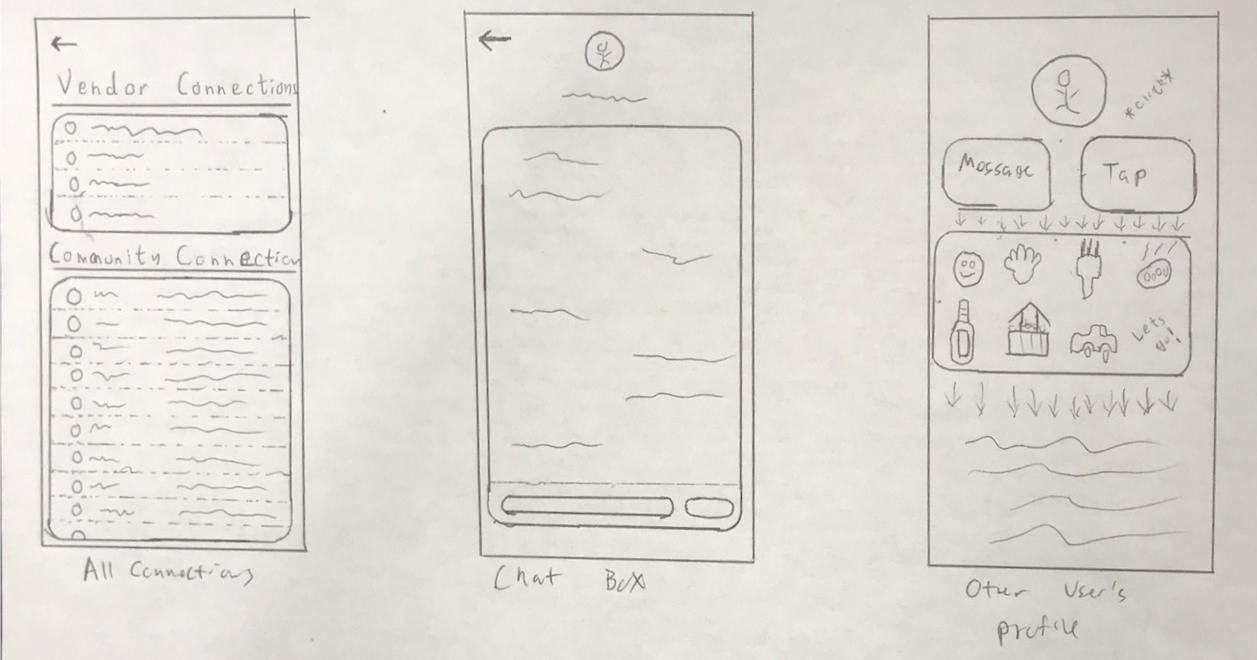 Vendor Connections
Community Connection
All Connections
Chat Box
*click*
Message
Tap
Lets
go!
Other User's
profile